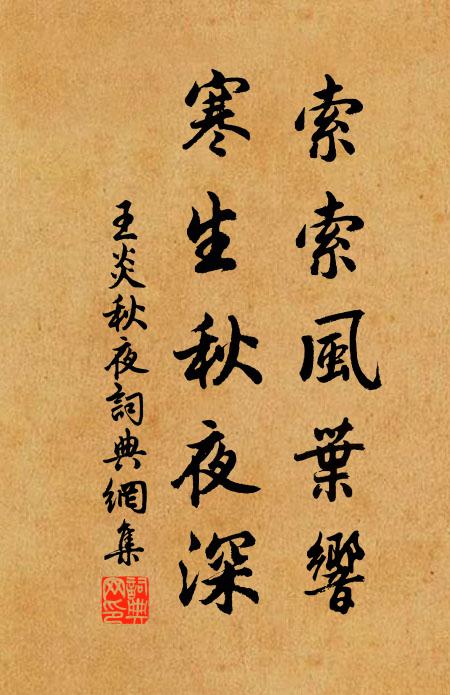 索索風葉響
寒生秋夜深
王炎秋夜詞典網集
詞典网印